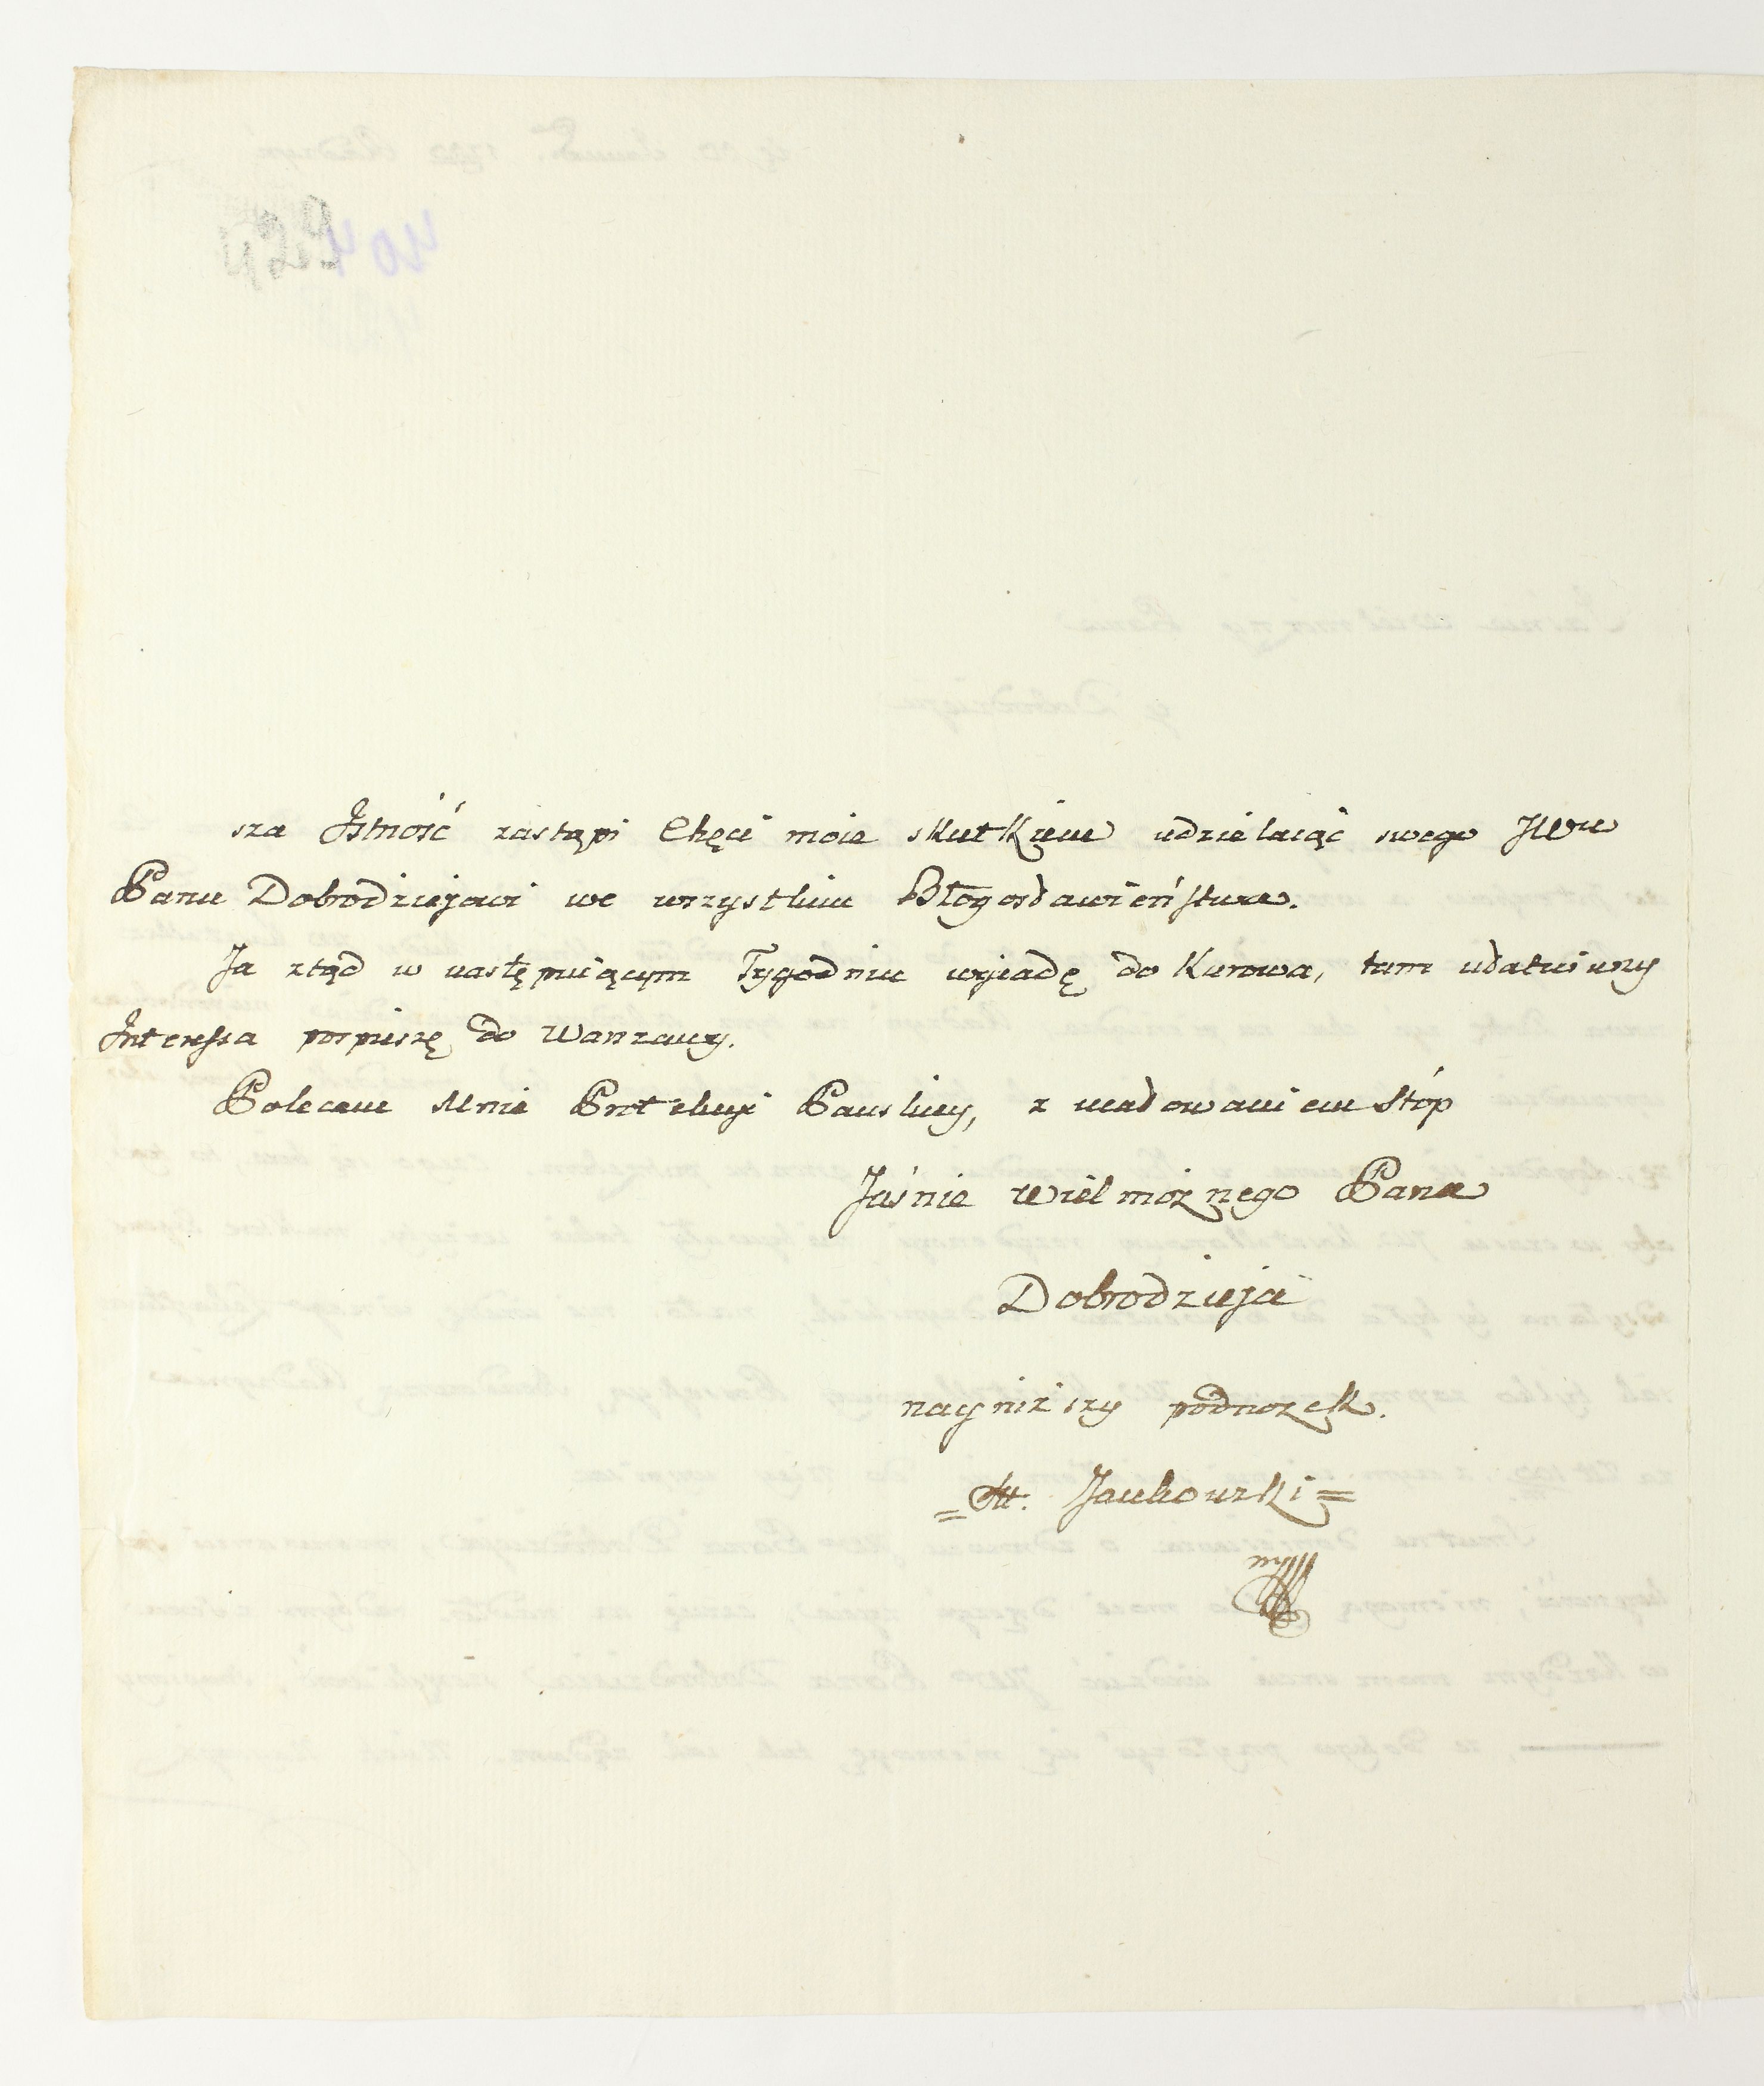 sza Istność zastąpi Chęci moie skutkiem udzielaiąc swego JWu
Panu Dobrodziejowi we wszystkim Błogosławieństwa.
Ja ztąd w następuiącym Tygodniu wyiadę do Kurowa, tam udatwiwszy
Interessa pospieszę do Warszawy.
Polecam Mnie Protekcyi Pańskiey, z ucałowaniem Stóp
Jaśnie Wielmożnego Pana
Dobrodzieja
nayniższy podnożek.
= M. Jankowski =
mp